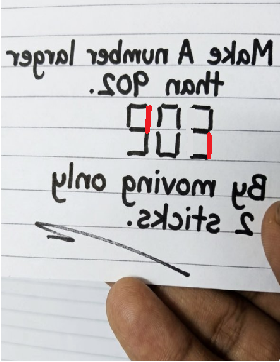 Make A number larger
than 902.
By moving only
2 sticks.